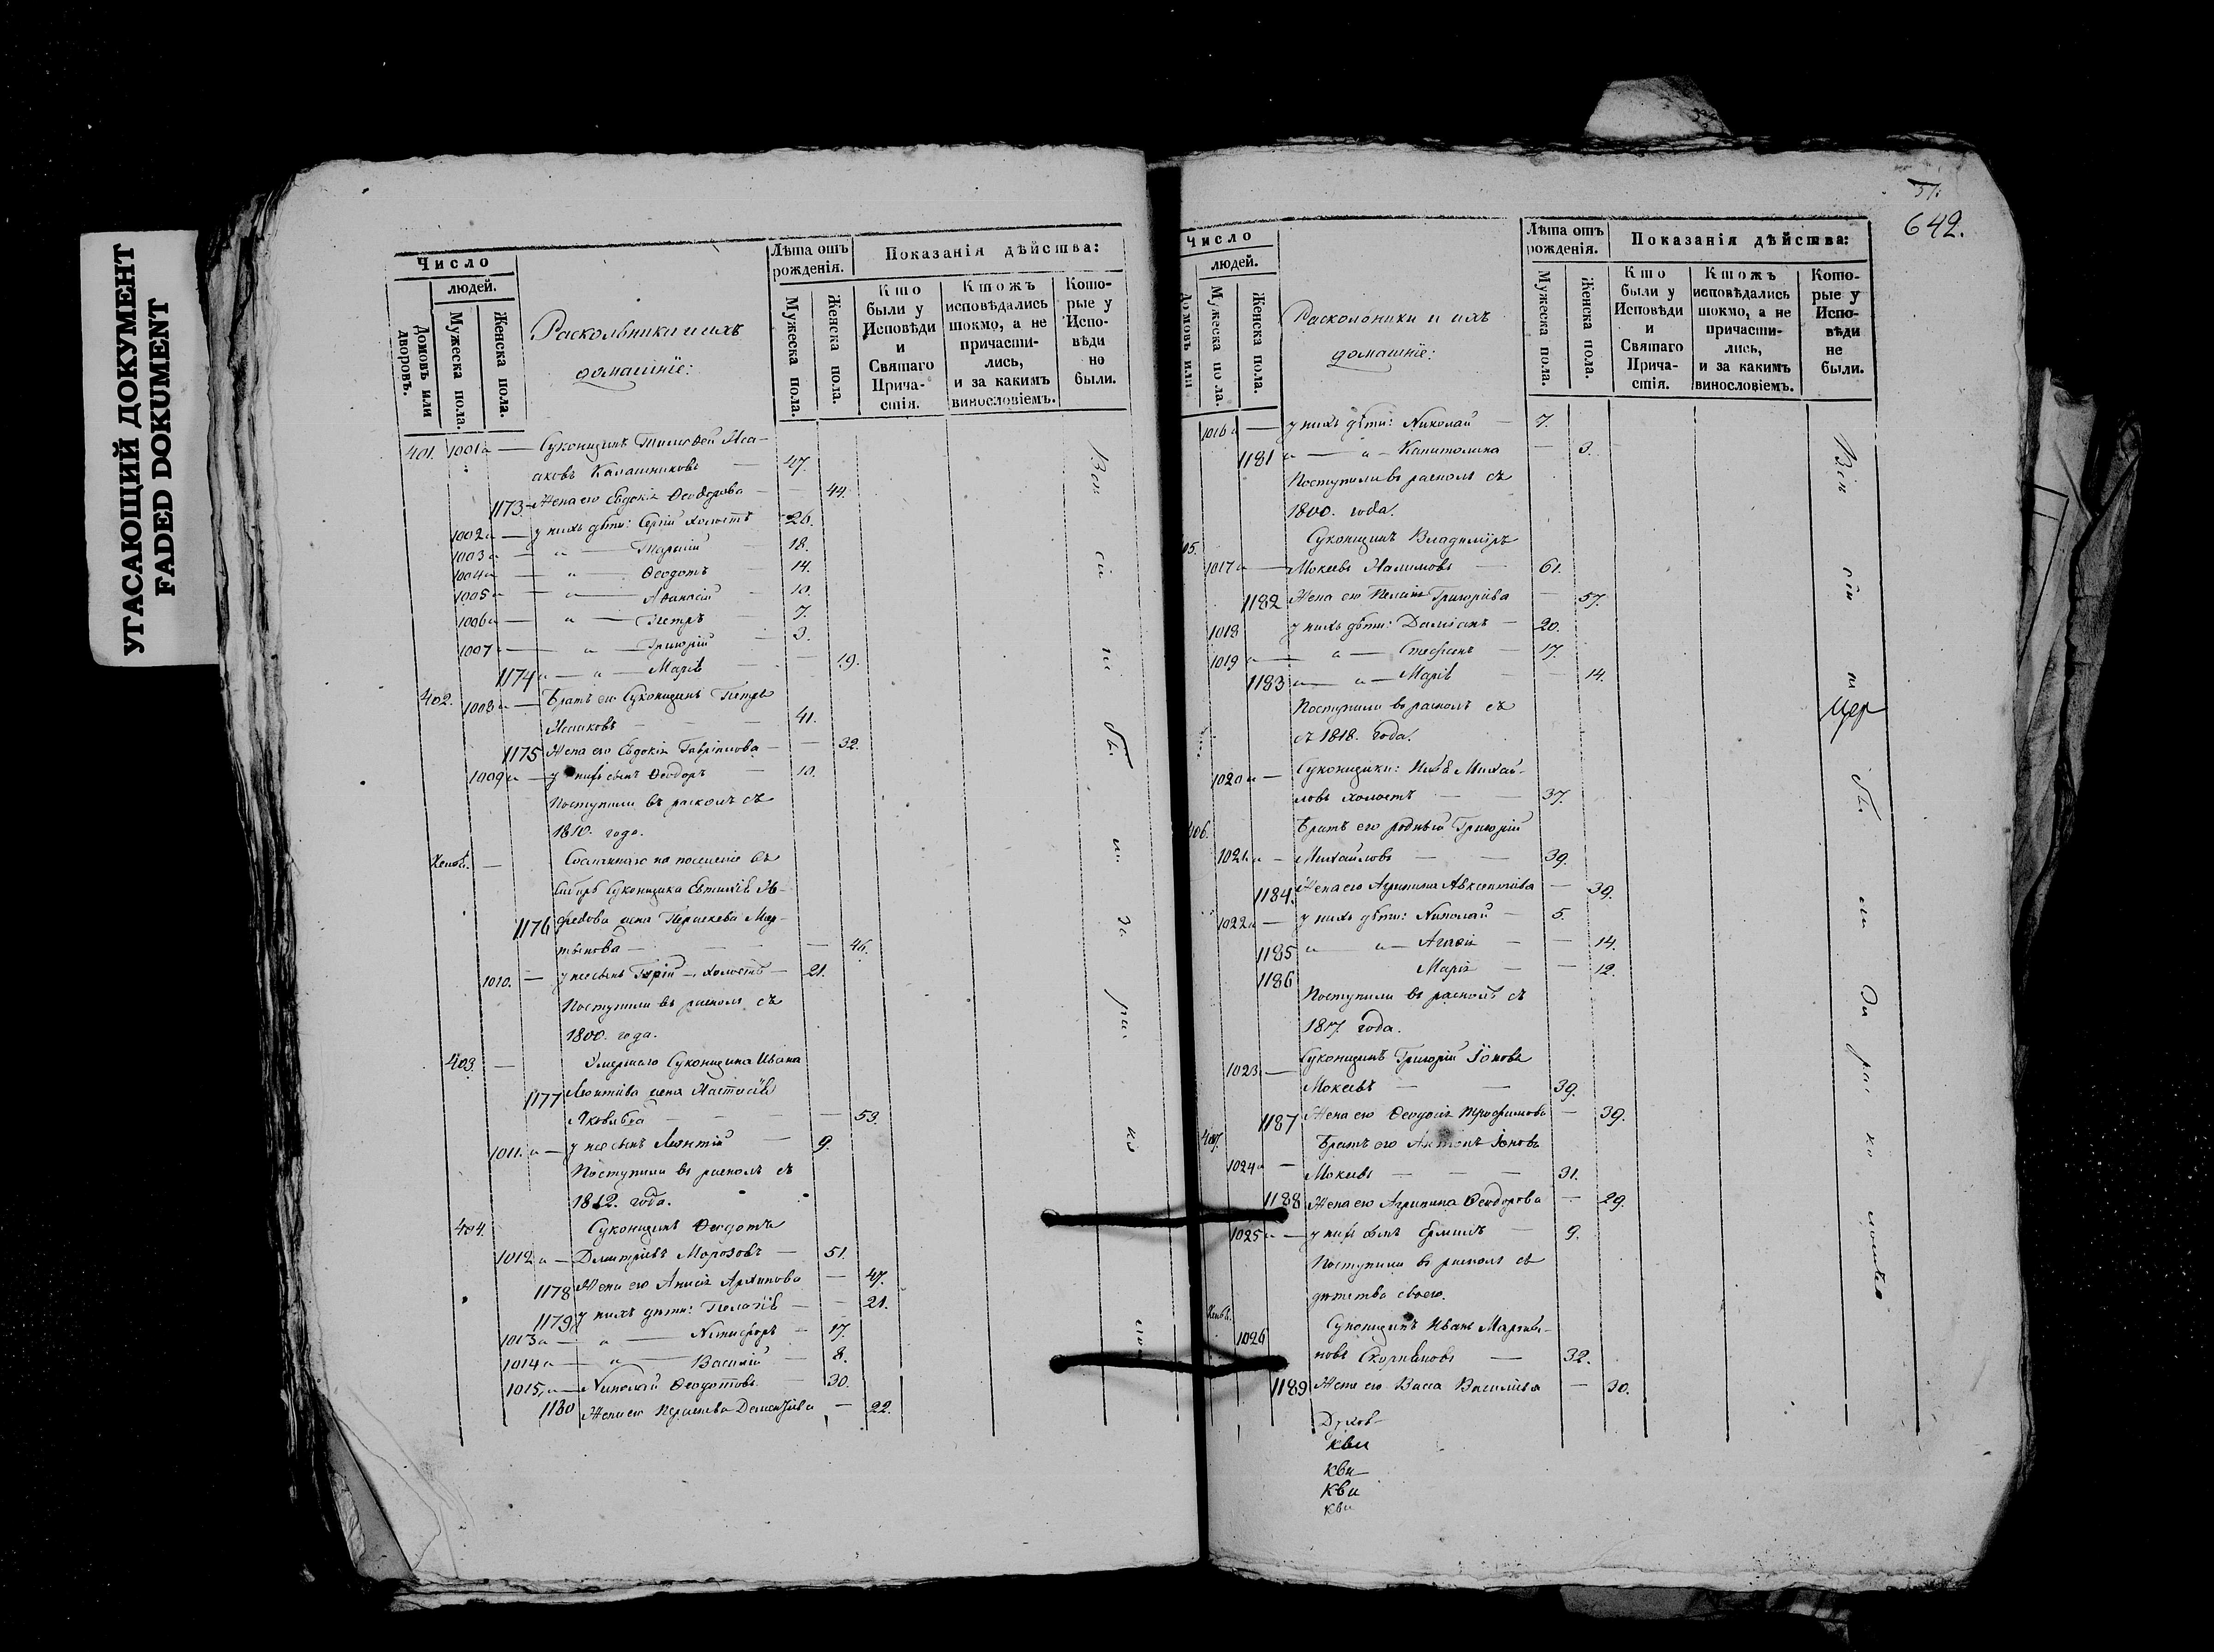 УГАСАЮЩИЙ ДОКУМЕНТ
FADED DOKUMENT
Число
людей.
Домовъ или дворовъ.
Мужеска пола.
Женска пола.
Раскольники и ихъ
домашніе:
Лѣта отъ рожденія.
Мужеска пола.
Женска пола.
Показанія дѣйства:
Кто были у Исповѣди и Святаго Прича-стія.
Ктожъ исповѣдались токмо, а не причасти-лись, и за какимъ винословіемъ.
Кото-рые у Испо-вѣди но были.
401. 1001 — Суконщикъ Тимофей Иса-
аковъ Калашниковъ — 47.
1173 — Жена его Евдокія Ѳеодорова — — 44.
1002 — у нихъ дѣти: Сергій холостъ 26.
1003 — — Тарасій — 18.
1004 — — Ѳеодотъ — 14.
1005 — — Аѳанасій — 10.
1006 — — Петръ — 7.
1007 — — Григорій — 3.
1174 — — Марія — — 19.
402. 1008 — Братъ его Суконщикъ Петръ
Исааковъ — — — 41.
1175 Жена его Евдокія Гавріилова — — 32.
1009 — у нихъ сынъ Ѳеодоръ — 10.
Поступили въ расколъ съ
1810. года.
— Сосланнаго на поселеніе въ
Сибирь Суконщика Евтихія
1176 жена Параскева Мар-
тынова — — — — 46.
1010. — у нее сынъ — холостъ — 21.
Поступили въ расколъ съ
1800. года.
403. — Умершаго Суконщика Ивана
1177 Леонтіева жена Настасія
Яковлева — — — — 53.
1011. — у нее сынъ Леонтій — 9.
Поступили въ расколъ съ
1812. года.
404. Суконщикъ Ѳеодотъ
1012 — Дмитріевъ Морозовъ — 51.
1178 Жена его Анисія Архипова — 47.
1179 у нихъ дѣти: Пелагія — — 21.
1013 — — Никифоръ — 17.
1014 — — Василій — 8.
1015 — Николай Ѳеодотовъ — 30.
1180 Жена его — 22.
51.
642.
Число
людей.
Домовъ или
Мужеска пола.
Женска пола.
Раскольники и ихъ
домашніе:
Лѣта отъ рожденія.
Мужеска пола.
Женска пола.
Показанія дѣйства:
Кто были у Исповѣди и Святаго Прича-стія.
Ктожъ исповѣдались токмо, а не причасти-лись, и за какимъ винословіемъ.
Кото-рые у Испо-вѣди не были.
1016 — у нихъ дѣти: Николай — 7.
1181 — — Капитолина — 3.
Поступили въ расколъ съ
1800. года.
05. Суконщикъ Владиміръ
1017 — Мокеевъ Налимовъ — 61.
1182 Жена его Григоріева — 57.
1018 у нихъ дѣти: Даміанъ — 20.
1019 — — Стефанъ — 17.
1183 — — Марія — — 14.
Поступили въ расколъ съ
съ 1818. года.
1020 — Суконщики: Михай-
ловъ холостъ — — 37.
406. Братъ его родный Григорій
1021 — Михайловъ — — 39.
1184. Жена его Агрипина Авксентіева — 39.
1022 — у нихъ дѣти: Николай — 5.
1185 — — — — 14.
1186 Марія — — 12.
Поступили въ расколъ съ
1817. года.
1023 — Суконщикъ Григорій Іоновъ
Мокеевъ — — 39.
1187 Жена его Ѳеодосія Трофимова — 39.
407. Братъ его Антонъ Іоновъ
1024 — Мокеевъ — — — 31.
1188 Жена его Агрипина Ѳеодорова — 29.
1025 — у нихъ сынъ Ермилъ — 9.
Поступили въ расколъ съ
дѣтства своего.
1026 Суконщикъ Иванъ
— 32.
1189 Жена его Васса Васильева — 30.
Духов-
кви
кви
кви
кви